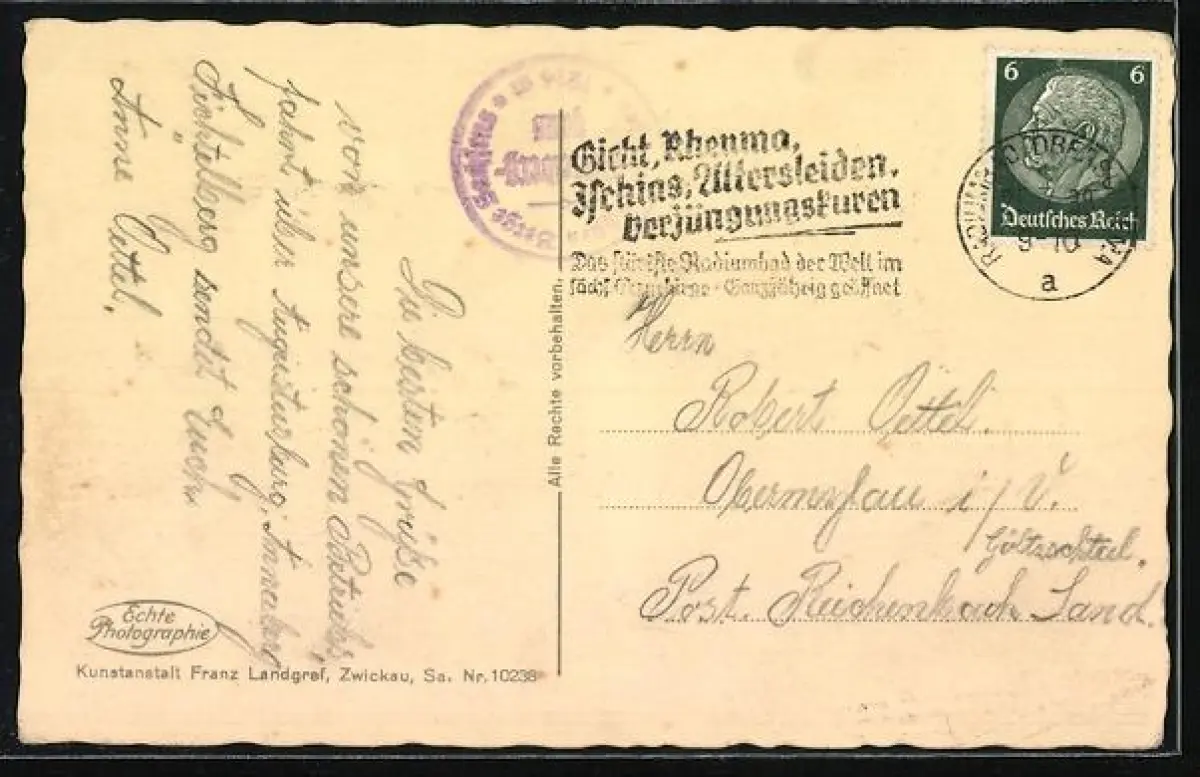 Die besten Grüße
von unsere schönen Betriebs,
fahrt über Augustusburg, Annaberg
Fichtelberg sendet Euch
Anne Oettel.
Echte
Photographie
Kunstanstalt Franz Landgraf, Zwickau, Sa. Nr. 10238
Alle Rechte vorbehalten.
Gicht, Rheuma,
Ischias, Altersleiden,
Verjüngungskuren
Das stärkste Radiumbad der Welt im
sächs. Erzgebirge · Ganzjährig geöffnet
6 6
Deutsches Reich
9-10
a
Herrn
Robert
i/V.
Göltzschtal.
Post. Reichenbach Land.